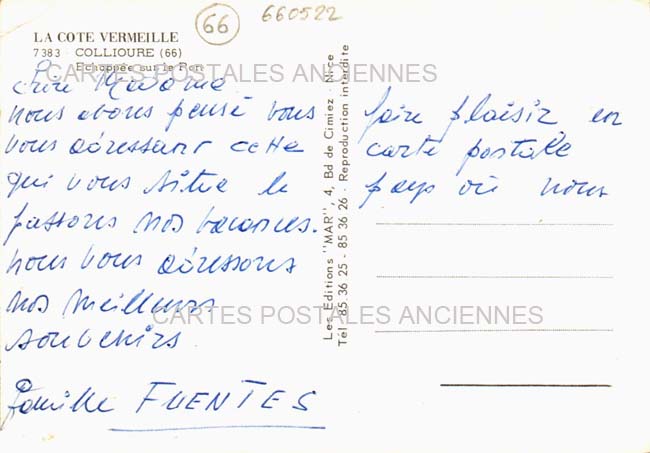 66
660522
LA COTE VERMEILLE
7383 - COLLIOURE (66)
Echappée sur le Port
CARTES POSTALES ANCIENNES
Chère Madame
nous avons pensé vous faire plaisir en
vous adressant cette carte postale
qui vous situe le pays où nous
passons nos vacances.
nous vous adressons
nos meilleurs
souvenirs
Famille FUENTES
CARTES POSTALES ANCIENNES
Les Editions "MAR", 4, Bd de Cimiez - Nice
Tél 85 36 25 - 85 36 26 - Reproduction interdite